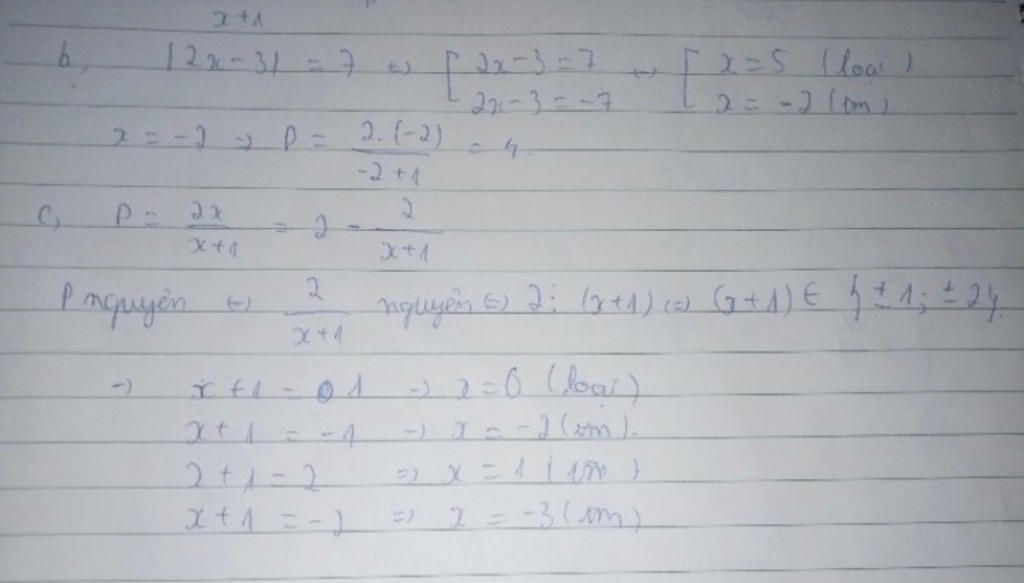 x+1
b, |2x-3| = 7 ⇔ [ 2x-3=7 ⇔ [ x=5 (loại)
2x-3=-7 x=-2 (tm)
x=-2 ⇒ P = \frac{2.(-2)}{-2+1} = 4.
c, P = \frac{2x}{x+1} = 2 - \frac{2}{x+1}
P nguyên ⇔ \frac{2}{x+1} nguyên ⇔ 2⋮(x+1) ⇔ (x+1) ∈ {±1; ±2}.
→ x+1 = 1 → x=0 (loại)
x+1 = -1 → x=-2 (tm).
2+1=2 ⇒ x=1 (tm)
x+1=-2 ⇒ x=-3 (tm)